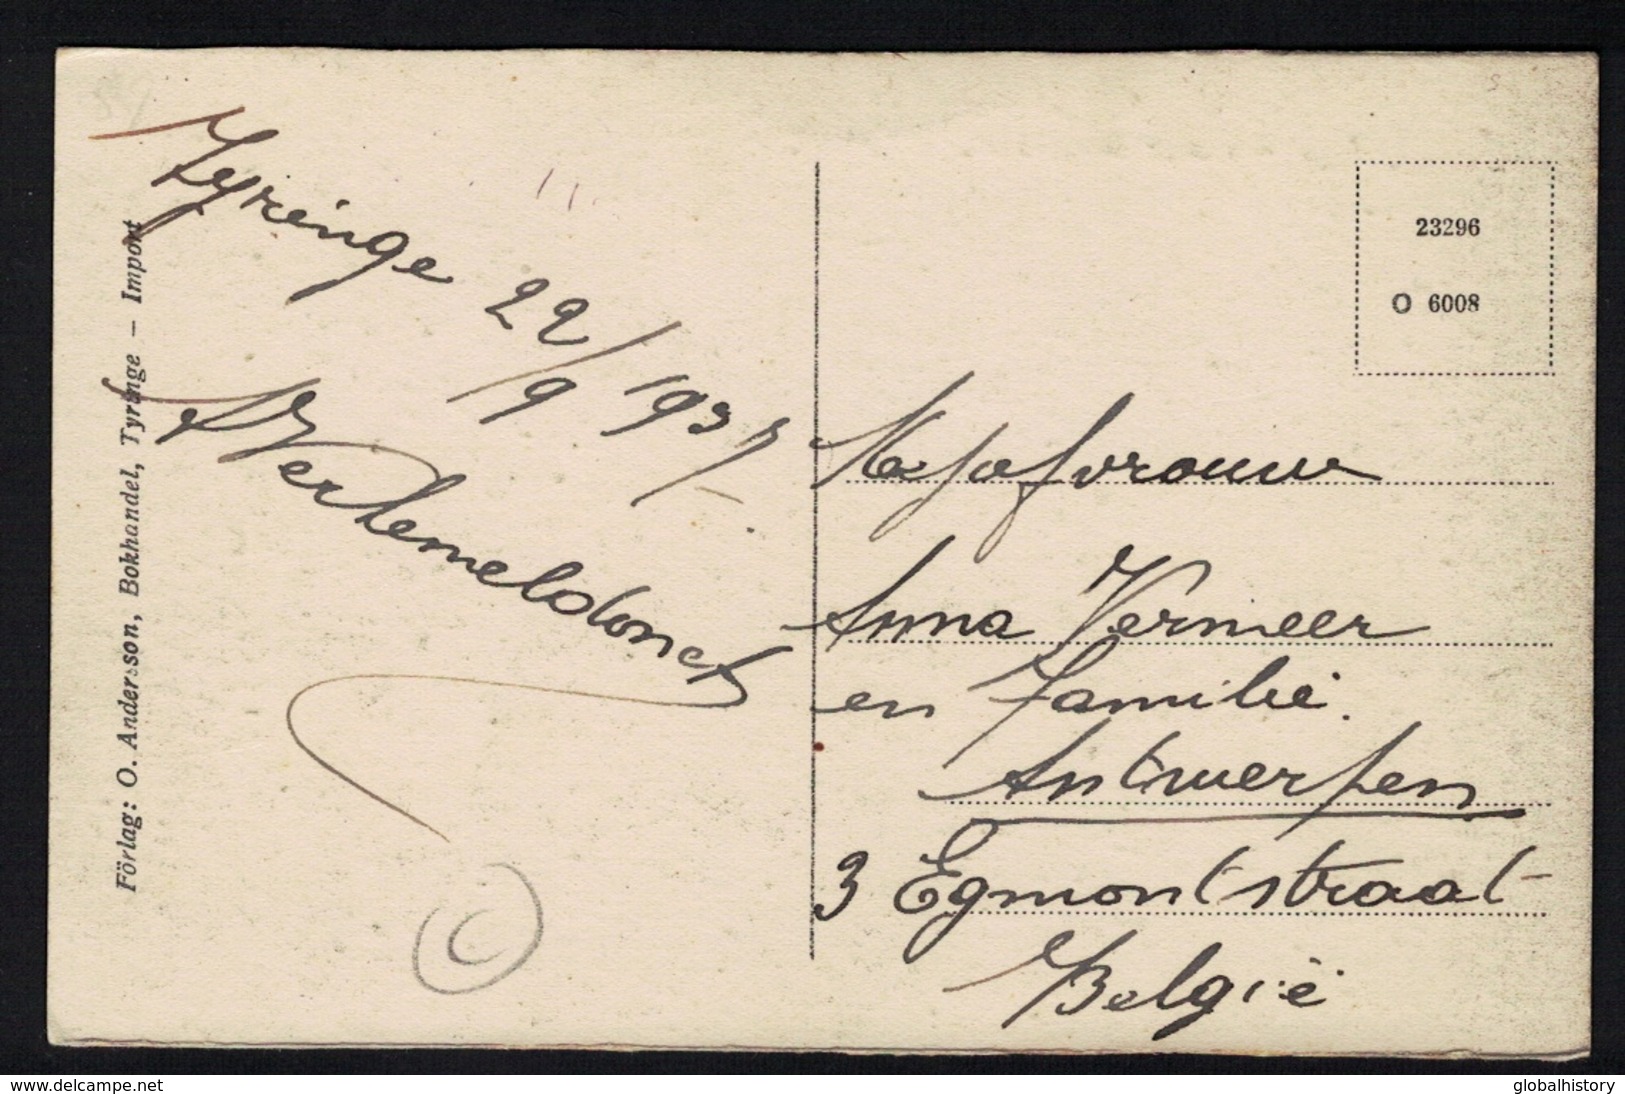 Tyringe 22/9 1937
Förlag: O. Andersson, Bokhandel, Tyringe – Import
23296
O 6008
Mejufvrouw
Anna Vermeer
en Familie.
Antwerpen
3 Egmontstraat
België
C
www.delcampe.net
globalhistory